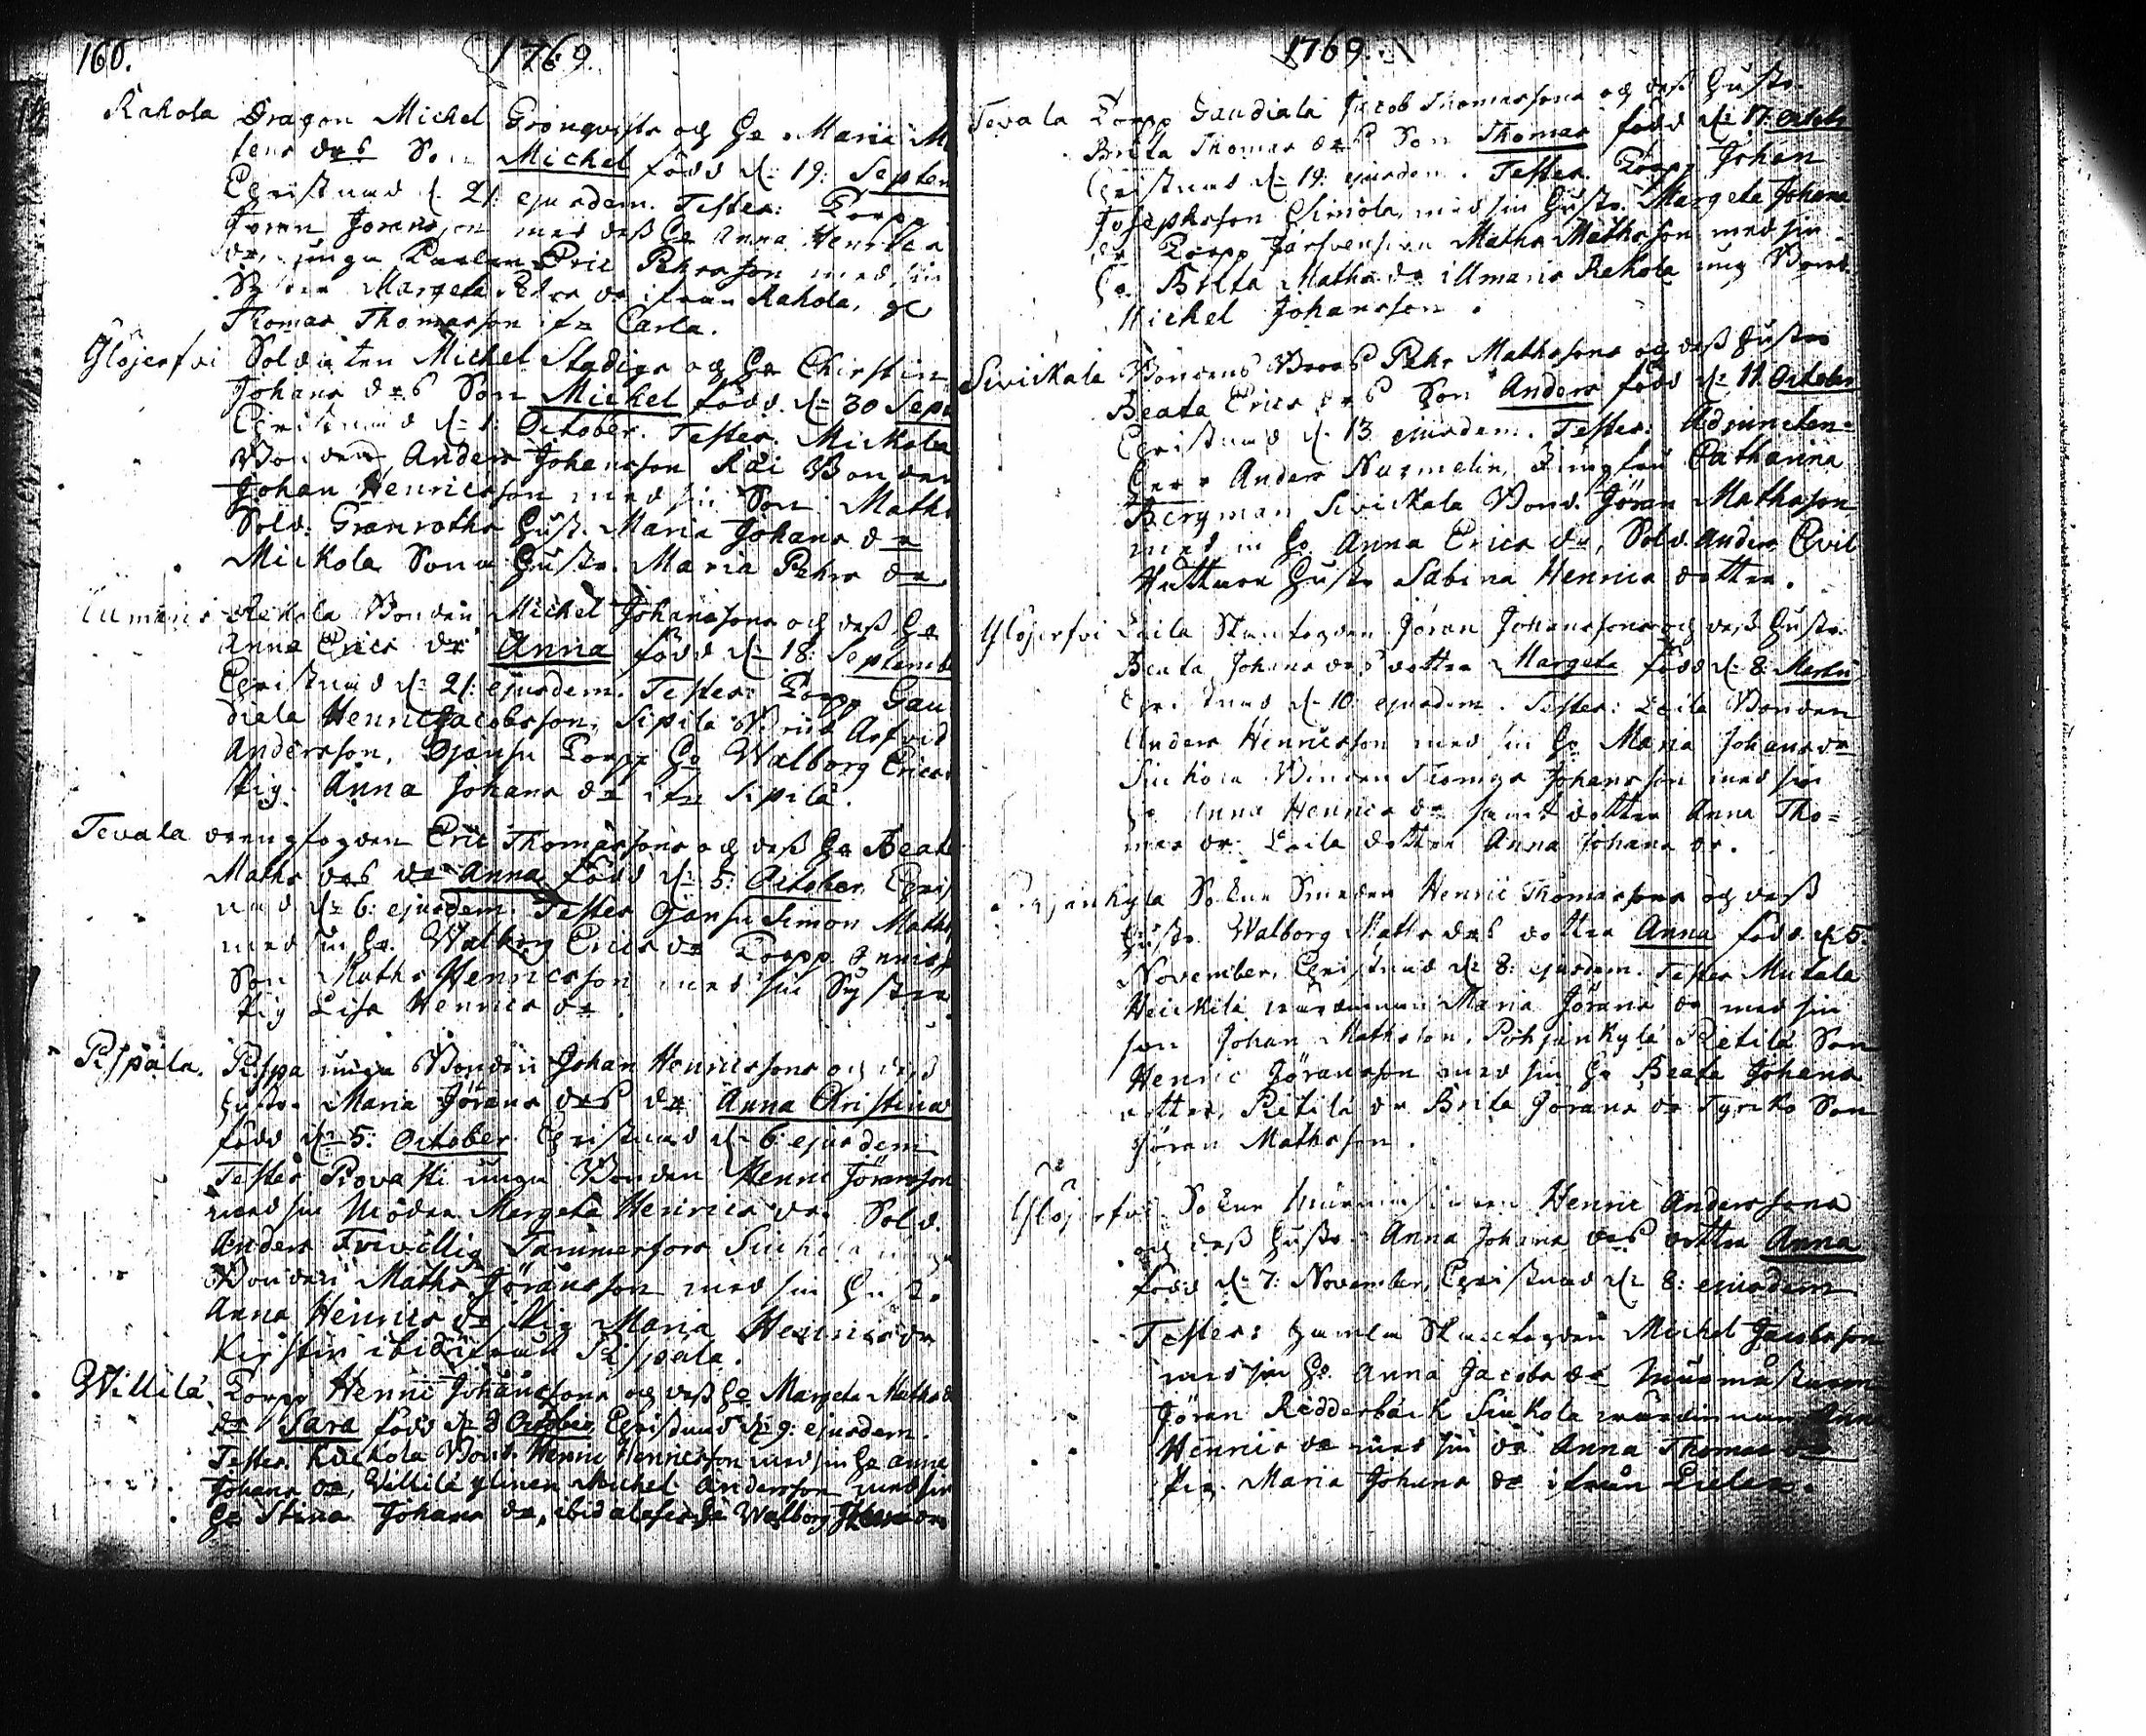 160.
1769.
Rahola Dragon Michel Grönqvists och H:o Maria M
tens d:rs Son Michel född d: 19: Septem
Christnad d. 21. ejusdem. Testes: Torpp
Joran Joransson med dess H:o Anna Henrics
d:r, unga Eric Pehrsson med sin
Syster Margeta Pehrs d:r ifrån Rahola, 
Thomas Thomasson ifr: Carla.
Ylöjerfvi Soldaten Michel Stadigs och H:o Chirstin
Johans d:rs Son Michel född d: 30 Sept
Christnad d: 1: October. Testes. Mickola
Bonden Anders Johansson Räi Bonden
Johan Henricsson med sin Son Maths
Sold: Granroths Hust. Maria Johans d:r
Mickola Sons Hustr. Maria Pehrs d:r
Illmaris Rekola Bonden Michel Johanssons och dess H:o
Anna Erics d:r Anna född d: 18: Septemb
Christnad d: 21: ejusdem. Testes: Torpp Gau
diala Henric Jacobsson, Sipilä Arfvid
Andersson, Ojansu Torpp H:o Walborg Erics
Pig. Anna Johans d:r ifr: Sipilä.
Tevala drengfogden Eric Thomassons och dess H:o Beat
Maths d:rs d:r Anna född d: 5: October Chris
nad d: 6: ejusdem. Testes Ojansu Simon Maths
med sin H:o Walborg Erics d:r Torpp
Son Maths Henricsson med sin Syster
Pig Lisa Henrics d:r.
Pispala. Pispa unga Bonden Johan Henricssons och dess
Hustr. Maria Jörans d:rs d:r Anna Christina
född d: 5: October Christnad d: 6: ejusdem
Testes Provasti unga Bonden Henric Jöransson
med sin Moder Margeta Henrics d:r Sold.
Anders Frivillig Tammerfors
Bonden Maths Jöransson med sin H:o
Anna Henrics d:r Pig Maria Henrics d:r
Kirstin ibid. ifrån Pispala.
Willilä Torpp Henric Johanssons och dess H:o Margeta Maths d
d:r Sara född d: 8 October Christnad d: 9: ejusdem.
Testes. Kuckola Bond. Henric Henricsson med sin H:o Anna
Johans d:r, Villilä Michel Andersson med sin
H:o Stina Johans d:r, ibid Walborg
1769.
Tevala Torpp Gaudiala Jacob Thomassons och dess Hustr.
Brita Thomas d:rs Son Thomas född d: 17: Octobr
Christnad d: 19: ejusdem. Testes. Torpp Johan
Josephsson Simola, med sin Hustr. Margeta Johans
d:r Torpp Järfvensivu Maths Mathsson med sin
H:o Brita Maths d:r illmaris Rekola ung Bond
Michel Johansson.
Sivickala Bondens Pehr Mathssons och dess Hustru
Beata Erics d:rs Son Anders född d: 11. October
Christnad d. 13 ejusdem. Testes. Adjuncten
Herr Anders Nurmelin, Jungfru Catharina
Bergman Sivickala Bond. Jöran Mathsson
med sin H:o Anna Erics d:r, Sold. Anders Qvil
Huttuas Hustr Sabina Henrics dotter.
Ylöjerfvi Laila Skattfogden Jöran Johanssons och dess Hustr.
Beata Johans d:rs dotter Margeta född d: 8: Martii
Christnad d: 10: ejusdem. Testes: Laila Bonden
Anders Henricsson med sin H:o Maria Johans d:r
Bonden Thomas Johansson med sin
H:o Anna Henrics d:r samt dotter Anna Tho=
mas d:r. Laila dotter Anna Johans d:r.
Pohjankylä Sockne Smeden Henric Thomassons och dess
Hustr. Walborg Maths d:rs dotter Anna född d. 5:
November, Christnad d: 8: ejusdem. Testes Mutala
Heickilä Maria Jörans d:r med sin
son Johan Mathsson, Pohjankylä Pietilä Son
Henric Jöransson med sin H:o Beata Johans
dotter, Pietilä d:r Brita Jörans d:r Tyrcko Son
Jöran Mathsson.
Ylöjerfvi Sockne Henric Anderssons
och dess Hustr. Anna Johans d:rs dotter Anna
född d: 7: November, Christnad d: 8: ejusdem
Testes: Gamla Skattfogden Michel Jacobsson
med sin H:o Anna Jacobs d:r Murmästaren
Jöran Ridderbäck Anna
Henrics d:r med sin d:r Anna Thomas d:r
Pig. Maria Johans d:r ifrån